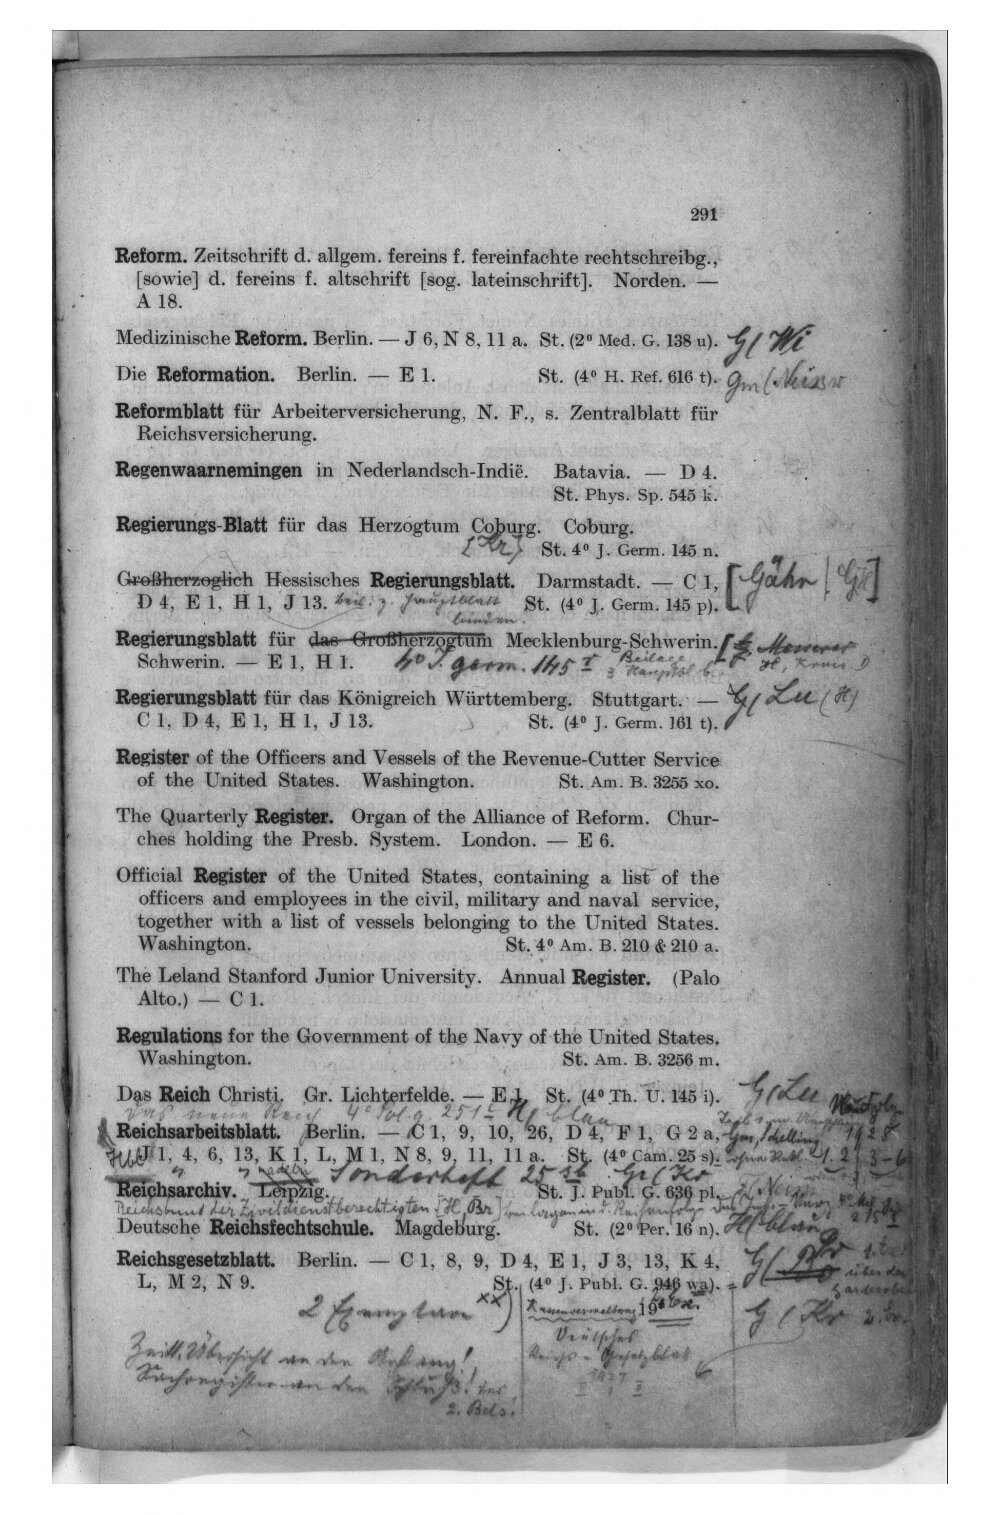 291
Reform. Zeitschrift d. allgem. fereins f. fereinfachte rechtschreibg.,
[sowie] d. fereins f. altschrift [sog. lateinschrift]. Norden. —
A 18.
Medizinische Reform. Berlin. — J 6, N 8, 11 a. St. (2⁰ Med. G. 138 u). G( Wi
Die Reformation. Berlin. — E 1. St. (4⁰ H. Ref. 616 t). Gm (
Reformblatt für Arbeiterversicherung, N. F., s. Zentralblatt für
Reichsversicherung.
Regenwaarnemingen in Nederlandsch-Indië. Batavia. — D 4.
St. Phys. Sp. 545 k.
Regierungs-Blatt für das Herzogtum Coburg. Coburg.
[Kr] St. 4⁰ J. Germ. 145 n.
Großherzoglich Hessisches Regierungsblatt. Darmstadt. — C 1, [Gähn
D 4, E 1, H 1, J 13. Beil. z. Hauptblatt St. (4⁰ J. Germ. 145 p).
binden.
Regierungsblatt für das Großherzogtum Mecklenburg-Schwerin.
Schwerin. — E 1, H 1. 4⁰ J. germ. 145 Beilage
Regierungsblatt für das Königreich Württemberg. Stuttgart. — G( Lu (H)
C 1, D 4, E 1, H 1, J 13. St. (4⁰ J. Germ. 161 t).
Register of the Officers and Vessels of the Revenue-Cutter Service
of the United States. Washington. St. Am. B. 3255 xo.
The Quarterly Register. Organ of the Alliance of Reform. Chur-
ches holding the Presb. System. London. — E 6.
Official Register of the United States, containing a list of the
officers and employees in the civil, military and naval service,
together with a list of vessels belonging to the United States.
Washington. St. 4⁰ Am. B. 210 & 210 a.
The Leland Stanford Junior University. Annual Register. (Palo
Alto.) — C 1.
Regulations for the Government of the Navy of the United States.
Washington. St. Am. B. 3256 m.
Das Reich Christi. Gr. Lichterfelde. — E 1. St. (4⁰ Th. U. 145 i). G( Lu
Das neue Reich 4⁰ Pol. g. 251 H( blau
Reichsarbeitsblatt. Berlin. — C 1, 9, 10, 26, D 4, F 1, G 2 a, Gm, Schelling 1928
J 1, 4, 6, 13, K 1, L, M 1, N 8, 9, 11, 11 a. St. (4⁰ Cam. 25 s).
Sonderheft 25 sb Gr( Kr
Reichsarchiv. Leipzig. St. J. Publ. G. 636 pl.
Reichsbund der Zivildienstberechtigten [H, Br]
Deutsche Reichsfechtschule. Magdeburg. St. (2⁰ Per. 16 n). H( blau
Reichsgesetzblatt. Berlin. — C 1, 8, 9, D 4, E 1, J 3, 13, K 4,
L, M 2, N 9. St. (4⁰ J. Publ. G. 946 wa).
2 Exemplare xx)
G ( Kr 2. Ex.
Deutsches
Reichs-Gesetzblatt
1927
I II
Zeitl. Übersicht an den Anfang!
Sachregister an den Schluß! des
2. Bds.